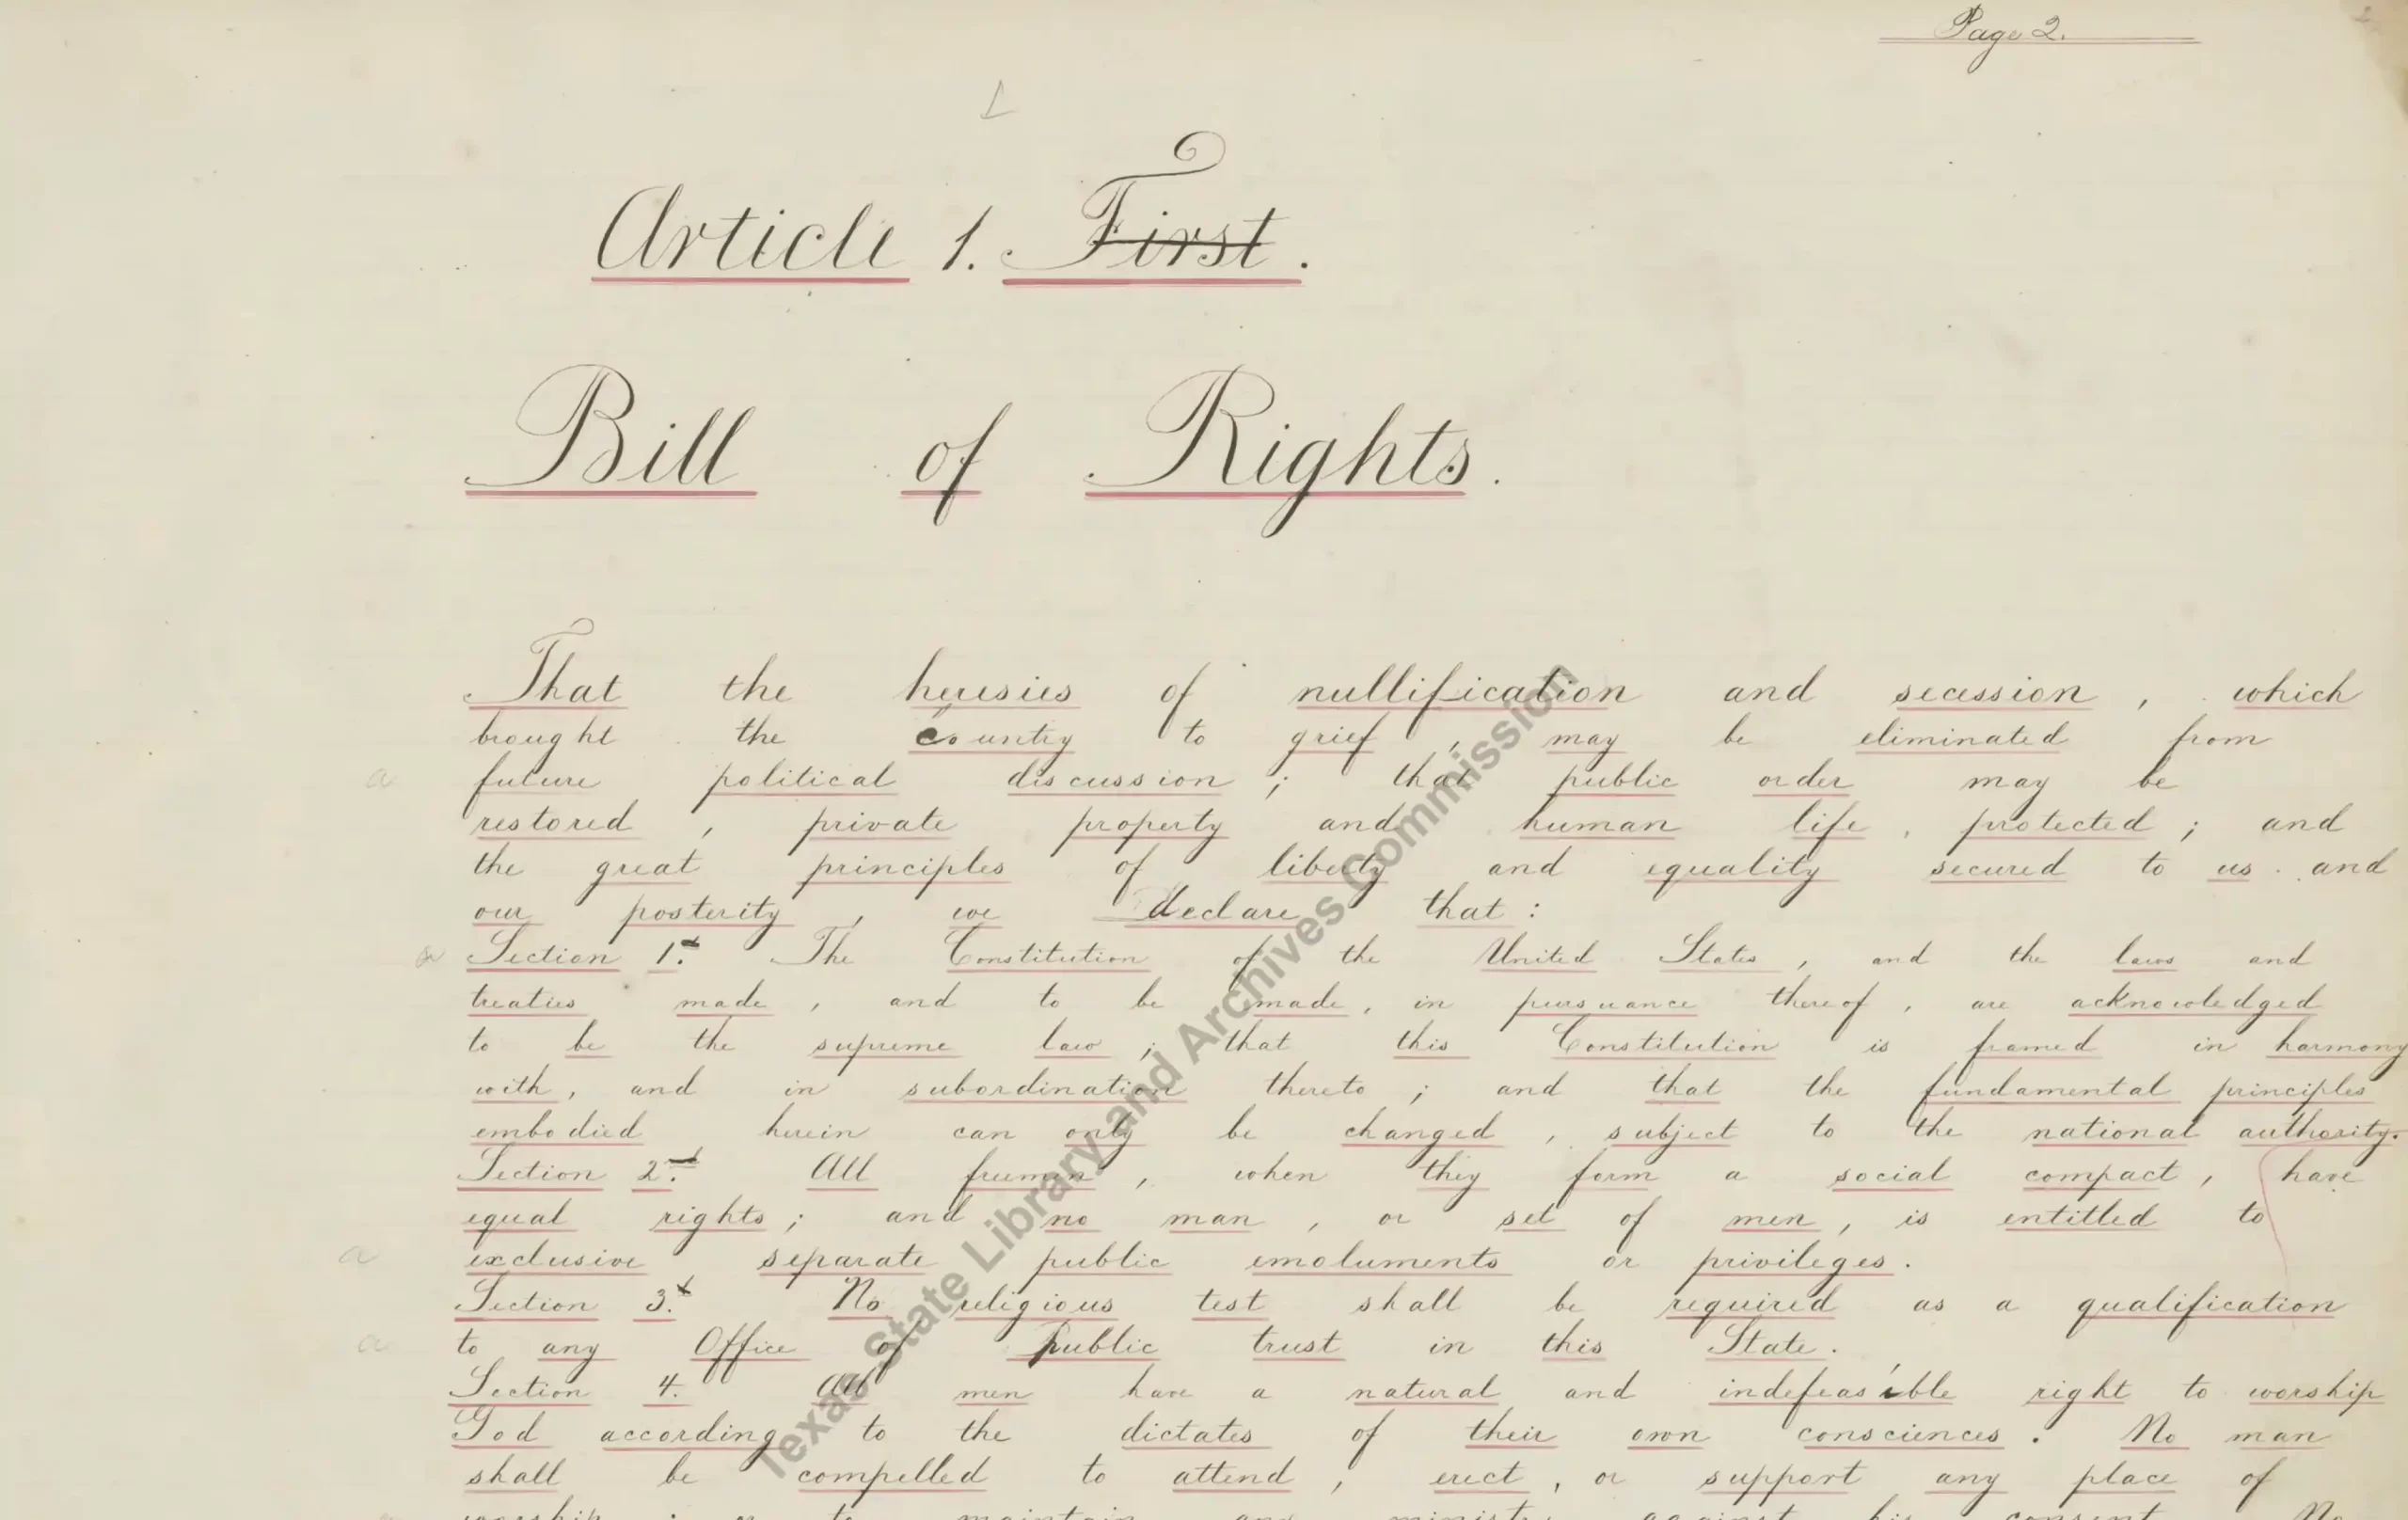 Page 2.
Article 1. First.
Bill of Rights.
That the heresies of nullification and secession, which
brought the country to grief, may be eliminated from
future political discussion; that public order may be
restored, private property and human life, protected; and
the great principles of liberty and equality secured to us and
our posterity, we declare that:
Section 1st. The Constitution of the United States, and the laws and
treaties made, and to be made, in pursuance thereof, are acknowledged
to be the supreme law; that this Constitution is framed in harmony
with, and in subordination thereto; and that the fundamental principles
embodied herein can only be changed, subject to the national authority.
Section 2d. All freemen, when they form a social compact, have
equal rights; and no man, or set of men, is entitled to
exclusive separate public emoluments or privileges.
Section 3d. No religious test shall be required as a qualification
to any Office of public trust in this State.
Section 4. All men have a natural and indefeasible right to worship
God according to the dictates of their own consciences. No man
shall be compelled to attend, erect, or support any place of
worship; or to maintain any ministry against his consent. No
Texas State Library and Archives Commission